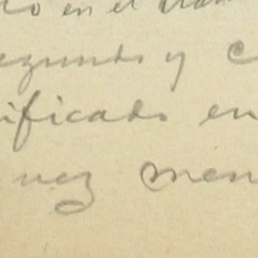 en el
segundo y
ificado en
vez men